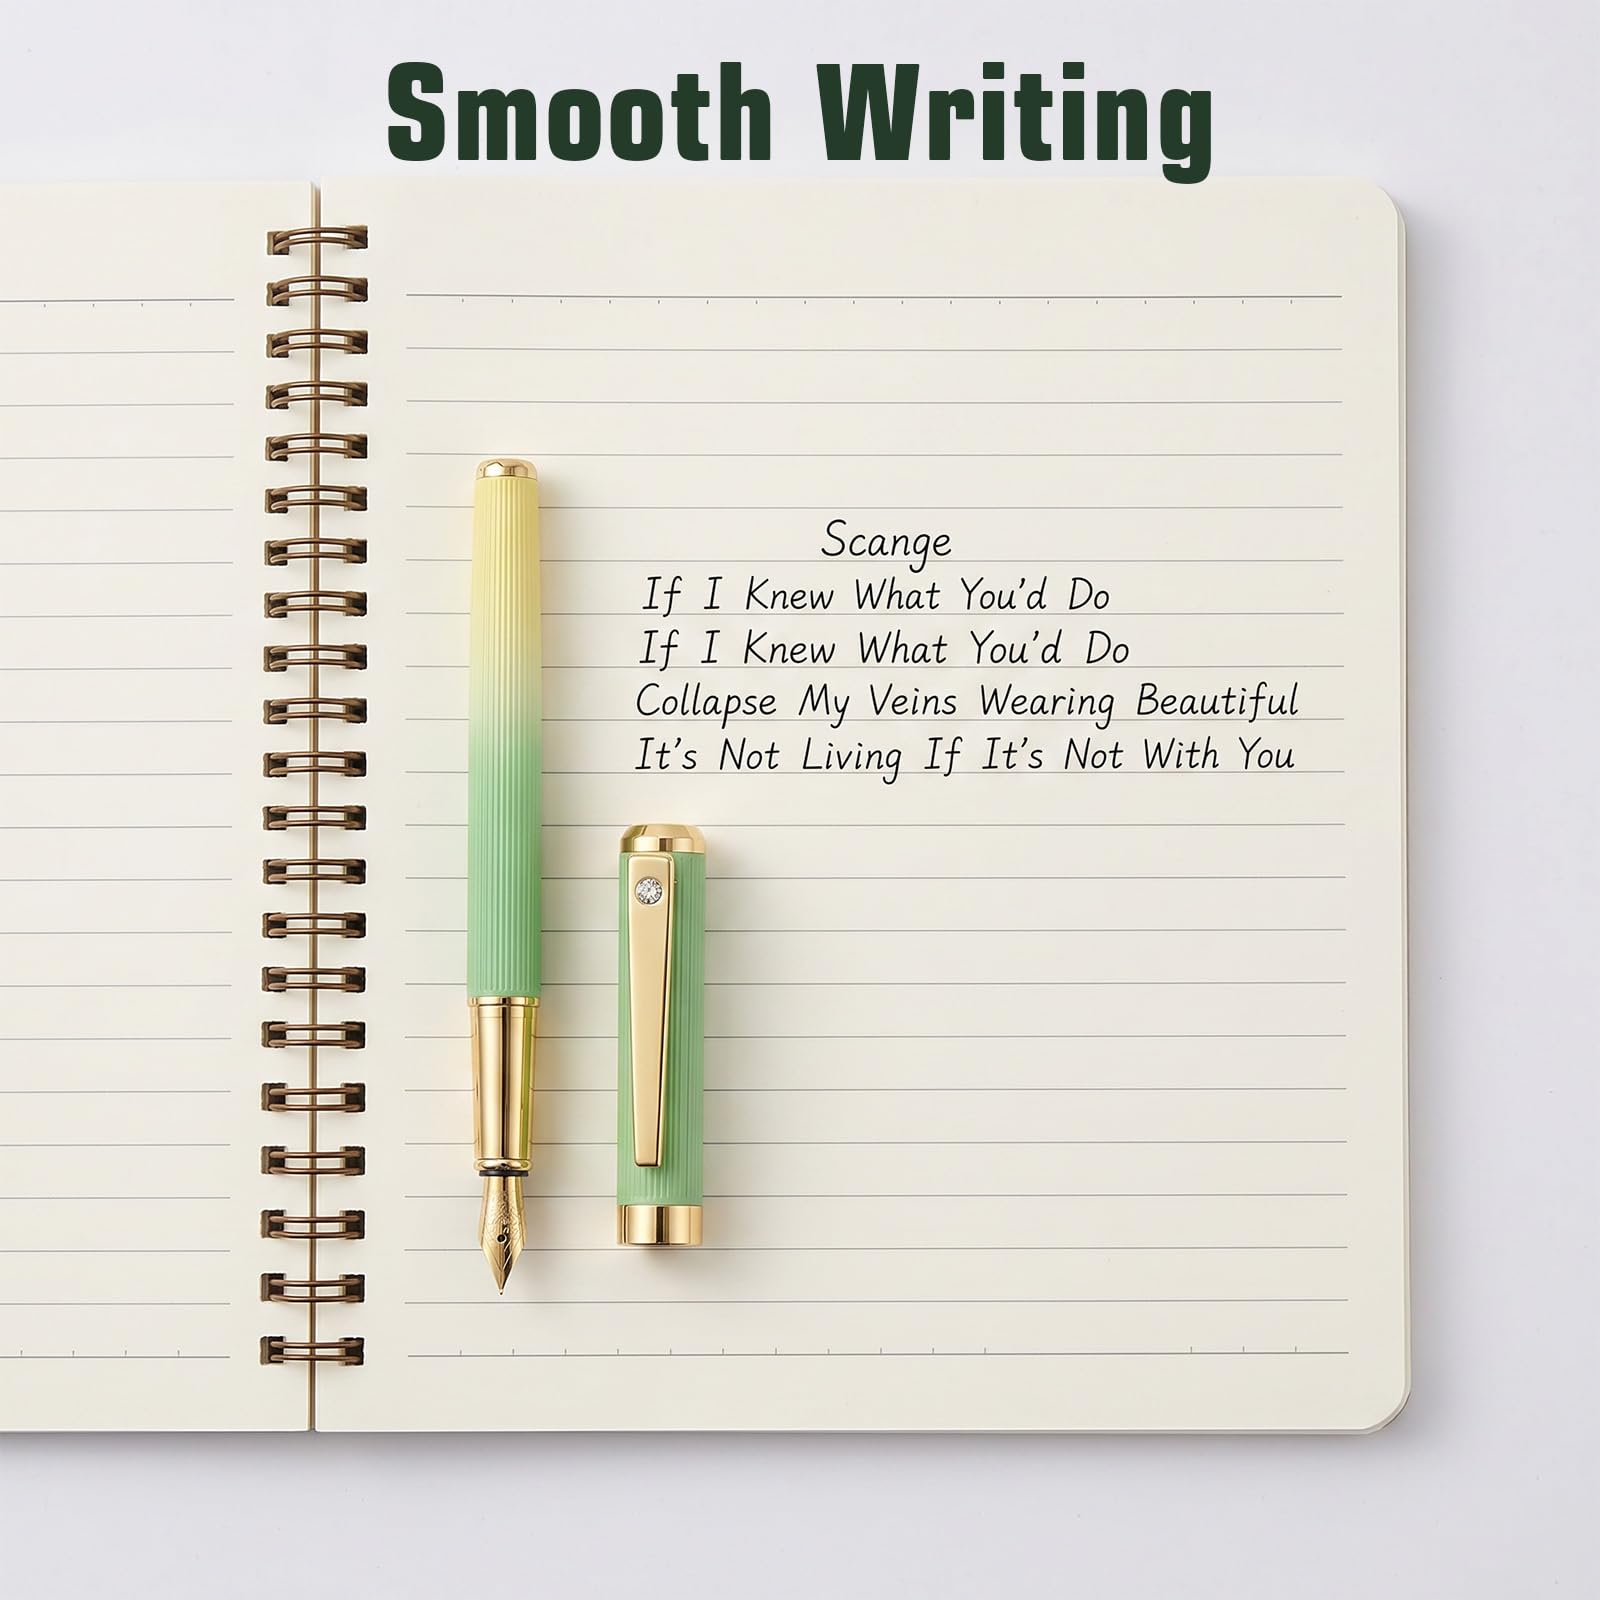 Smooth Writing
Scange
If I Knew What You'd Do
If I Knew What You'd Do
Collapse My Veins Wearing Beautiful
It's Not Living If It's Not With You